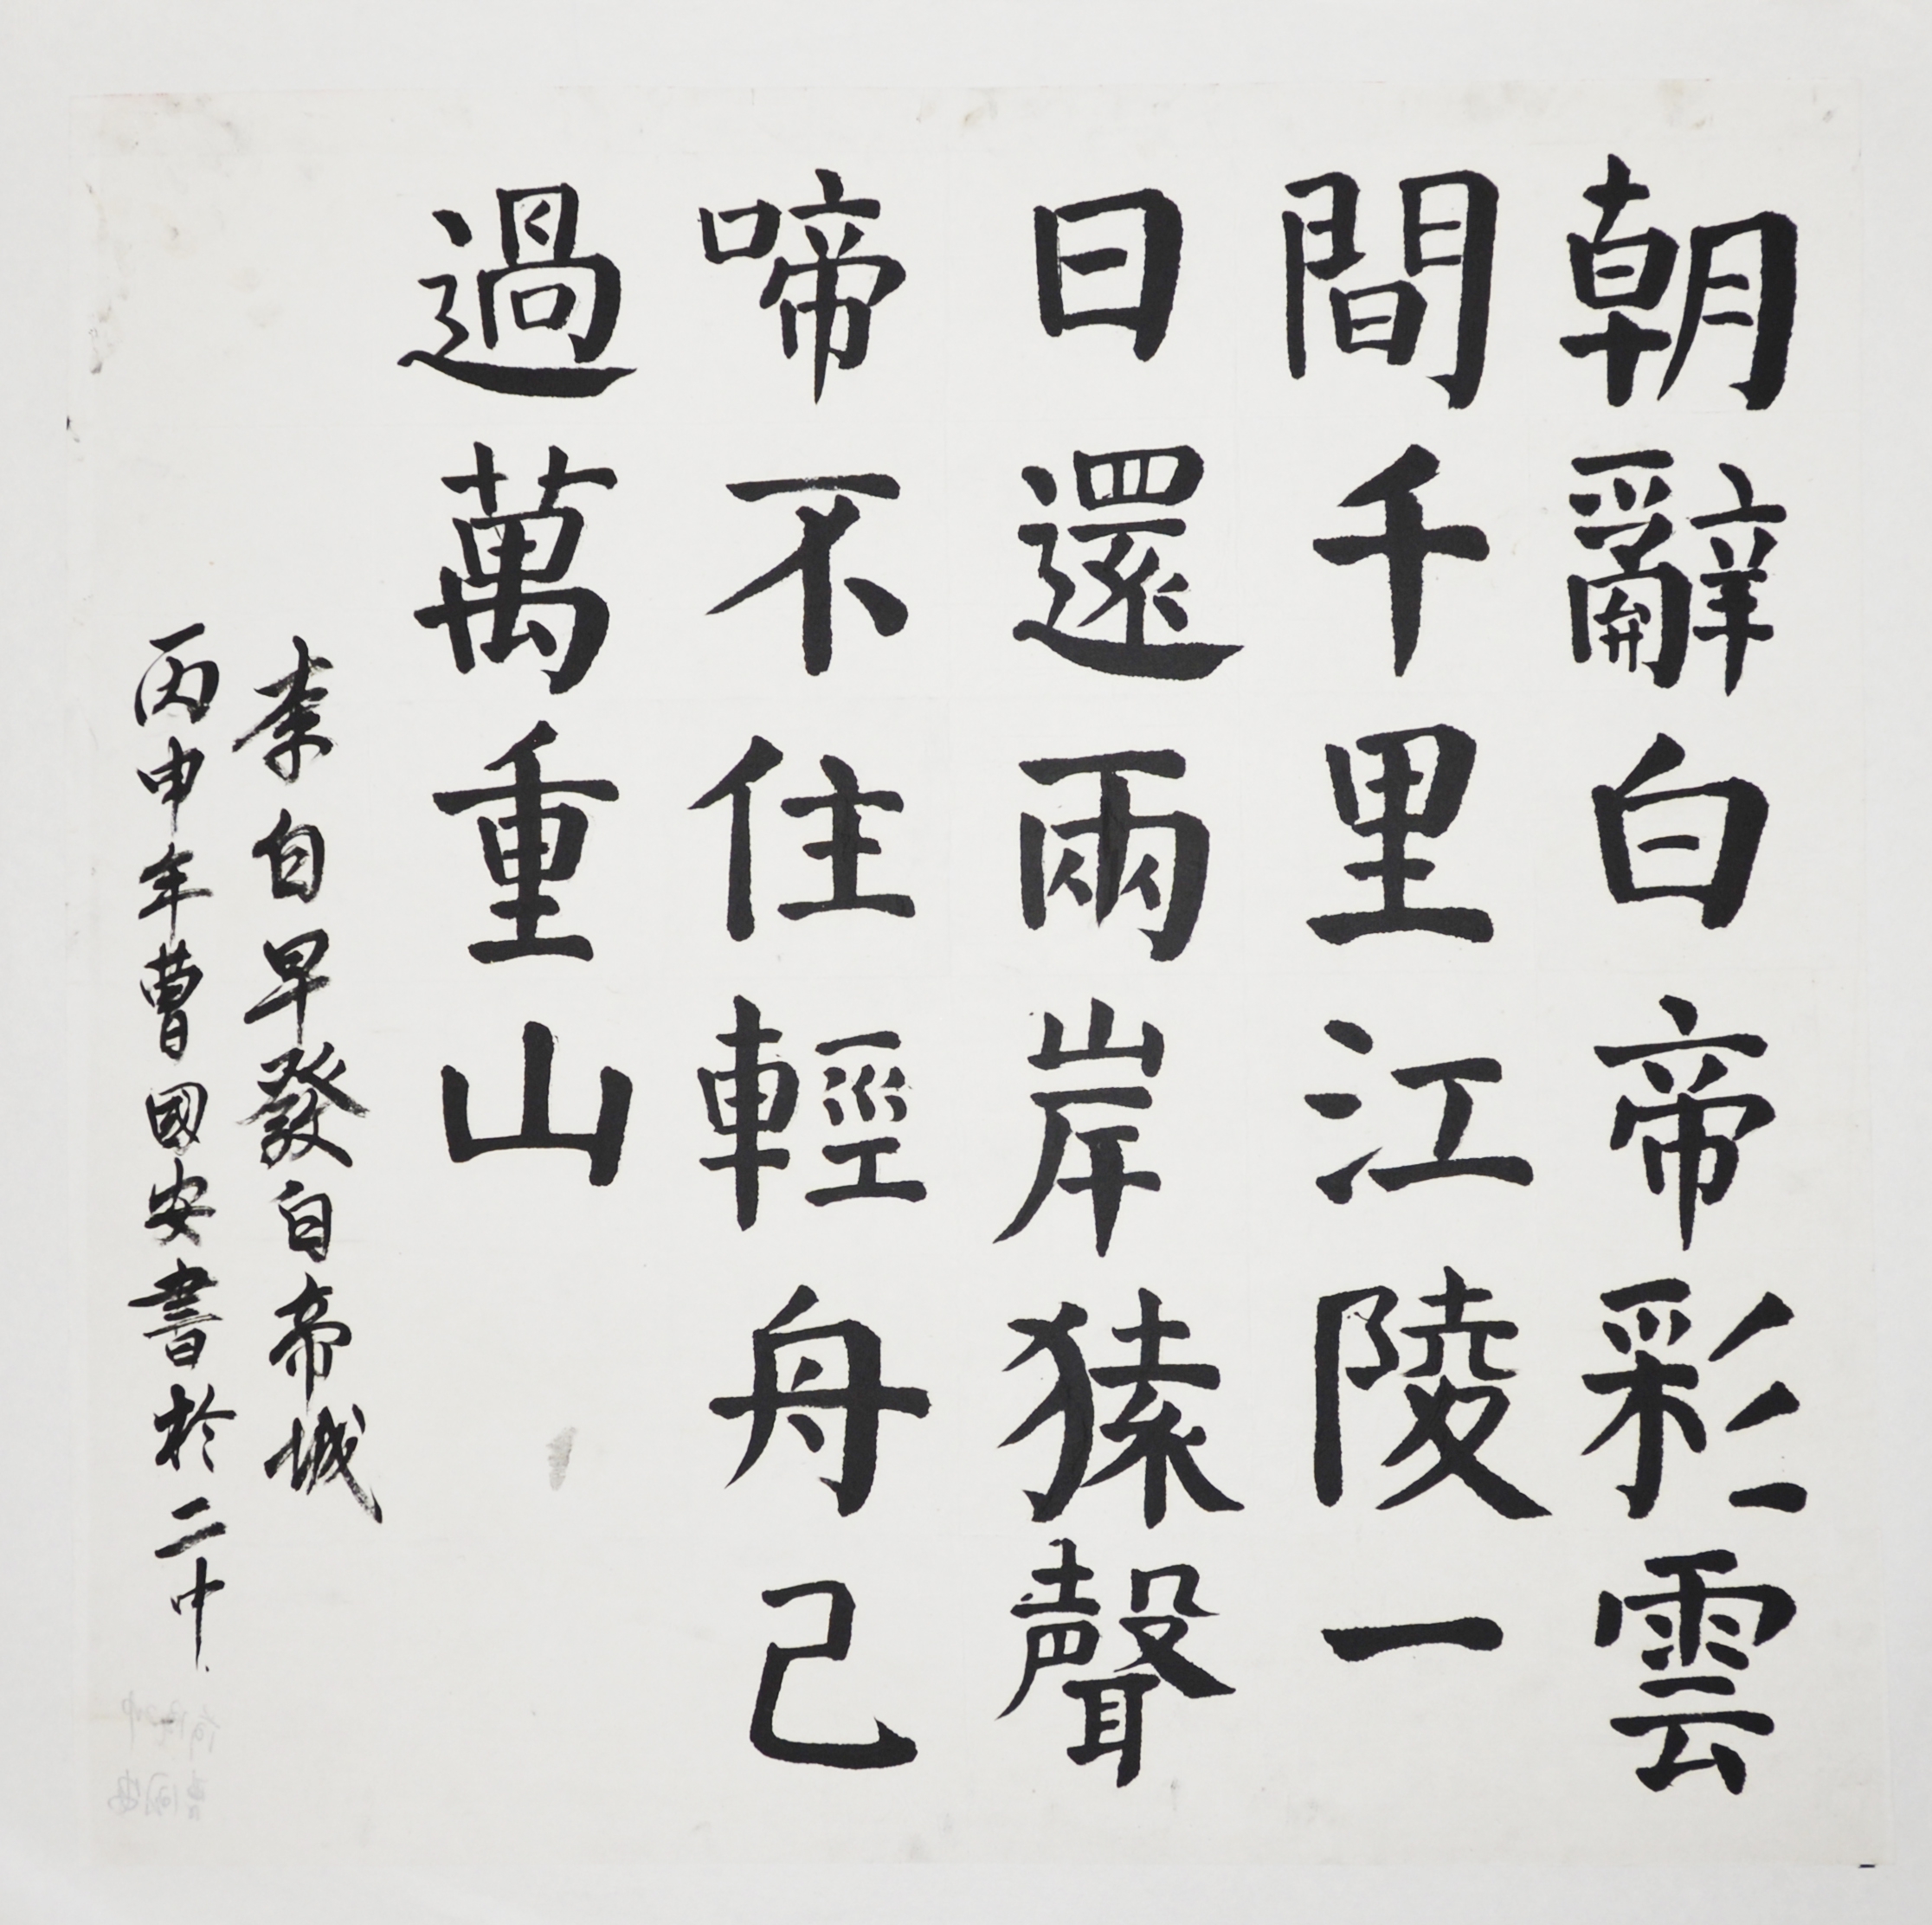 朝辭白帝彩雲
間千里江陵一
日還兩岸猿聲
啼不住輕舟已
過萬重山
李白早發白帝城
丙申年曹國安書於二中